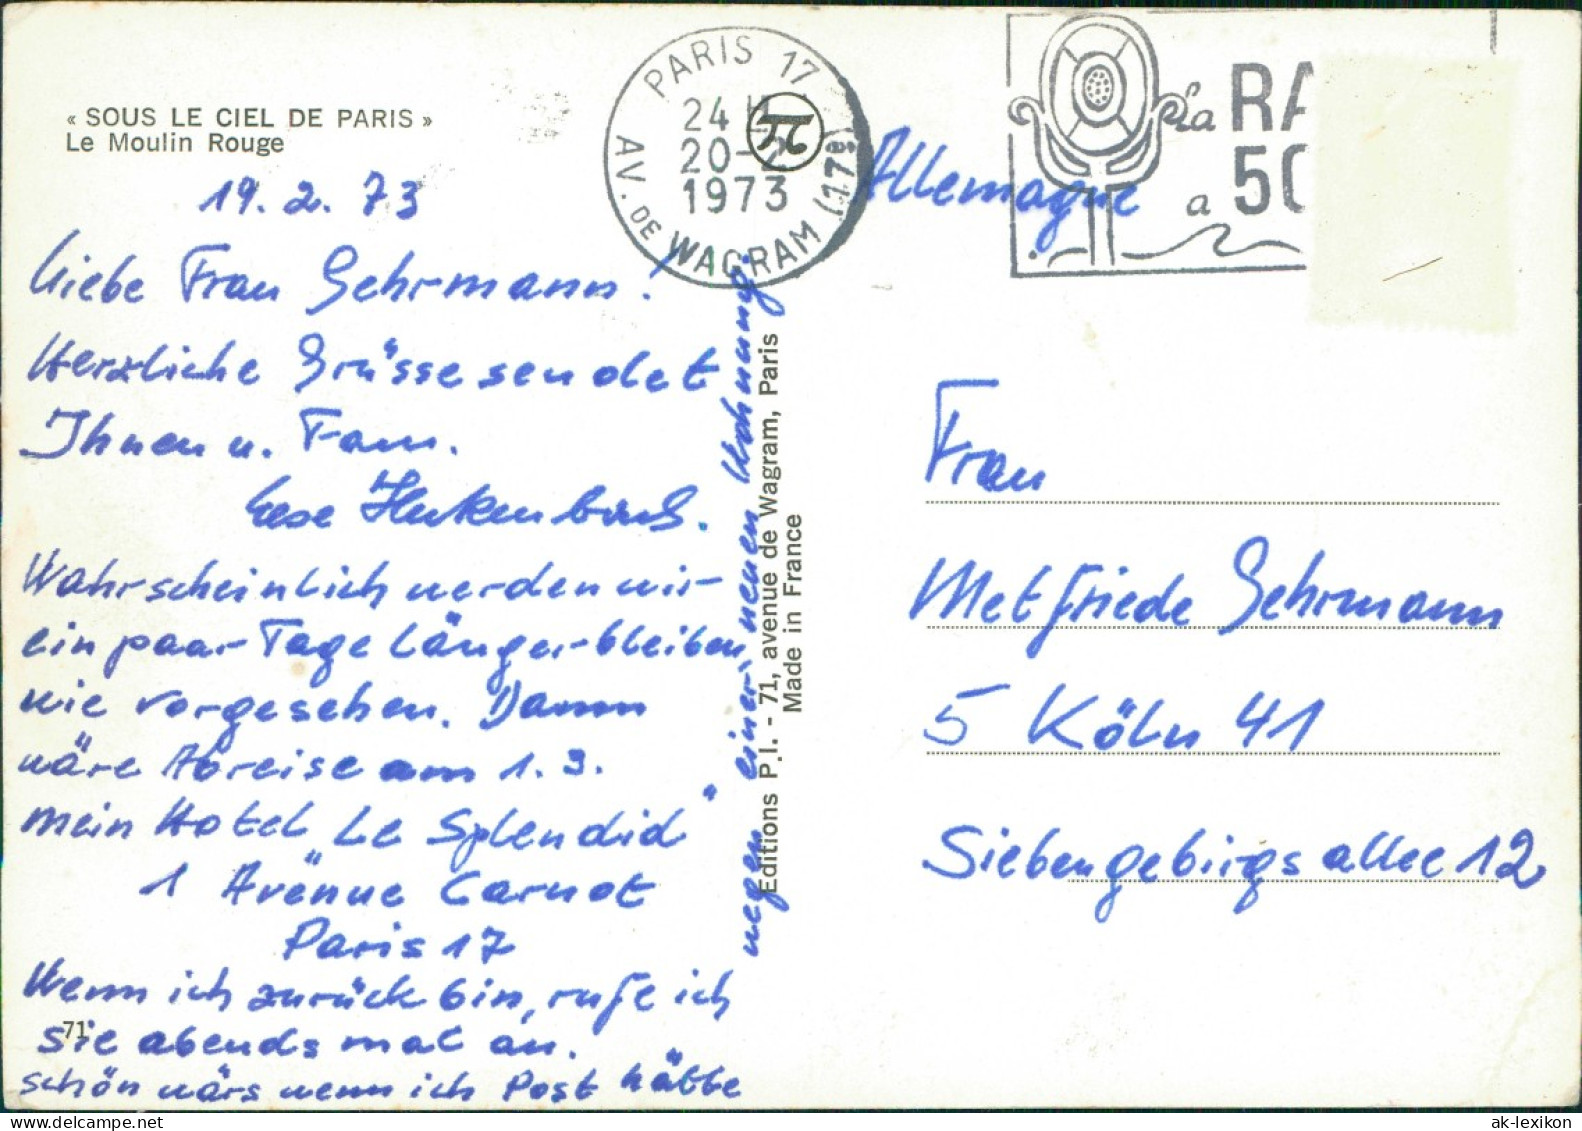 « SOUS LE CIEL DE PARIS »
Le Moulin Rouge
19. 2. 73
Liebe Frau Gehrmann!
Herzliche Grüsse sendet
Ihnen u. Fam.
Wahrscheinlich werden wir
ein paar Tage länger bleiben,
wie vorgesehen. Dann
wäre Abreise am 1. 3.
mein Hotel „Le Splendid"
1 Avenue Carnot
Paris 17
Wenn ich zurück bin, rufe ich
71
Sie abends mal an.
schön wärs wenn ich Post hätte
wegen einer neuen Wohnung.
Editions P.I. - 71, avenue de Wagram, Paris
Made in France
PARIS 17
24 H
20-2
1973
AV. DE WAGRAM (17e)
Allemagne
la RA
a 50
Frau
Metfriede Gehrmann
5 Köln 41
Siebengebirgsallee 12
ak-lexikon